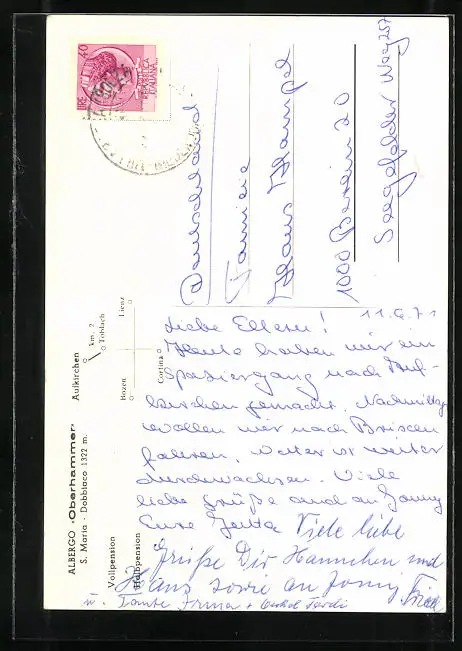 LIRE 40
REPUBBLICA
ITALIANA
Deutschland
Familie
Hans Hampel
1000 Berlin 20
Seegefelder Weg 257
ALBERGO »Oberhammer«
S. Maria - Dobbiaco 1322 m.
Vollpension
Halbpension
Aufkirchen
km. 2
Toblach
Lienz
Bozen
Cortina
11.6.71
Liebe Eltern!
Heute haben wir ein
Spaziergang nach Auf-
kirchen gemacht. Nachmittag
wollen wir nach Brixen
fahren. Wetter ist weiter
durchwachsen. Viele
liebe Grüße auch an
Eure Jutta Viele liebe
Grüße Dir Hannchen und
Hans sowie an
u. Tante Irma + Onkel